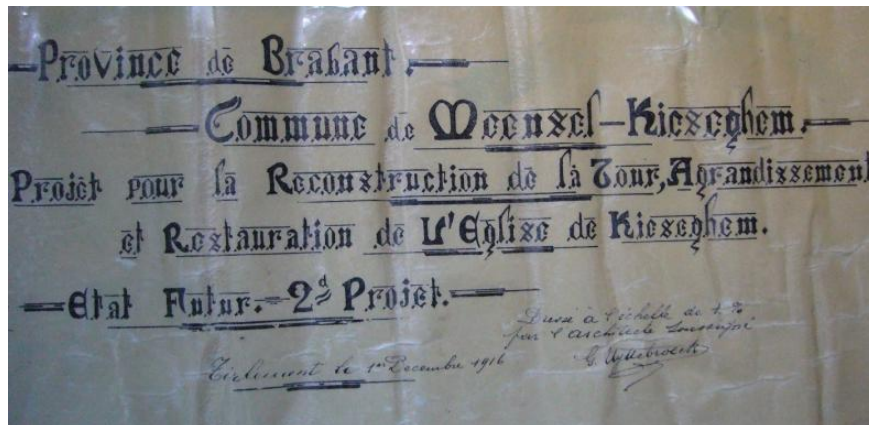 Province de Brabant.
Commune de Meensel-Kieseghem.
Projèt pour la Reconstruction de là Tour, Agrandissement
et Restauration de L'Eglise de Kieseghem.
Etat Futur. - 2d Projet.
Dressé à l'échelle de 1 %
par l'architecte soussigné
Tirlement le 1er Decembre 1916